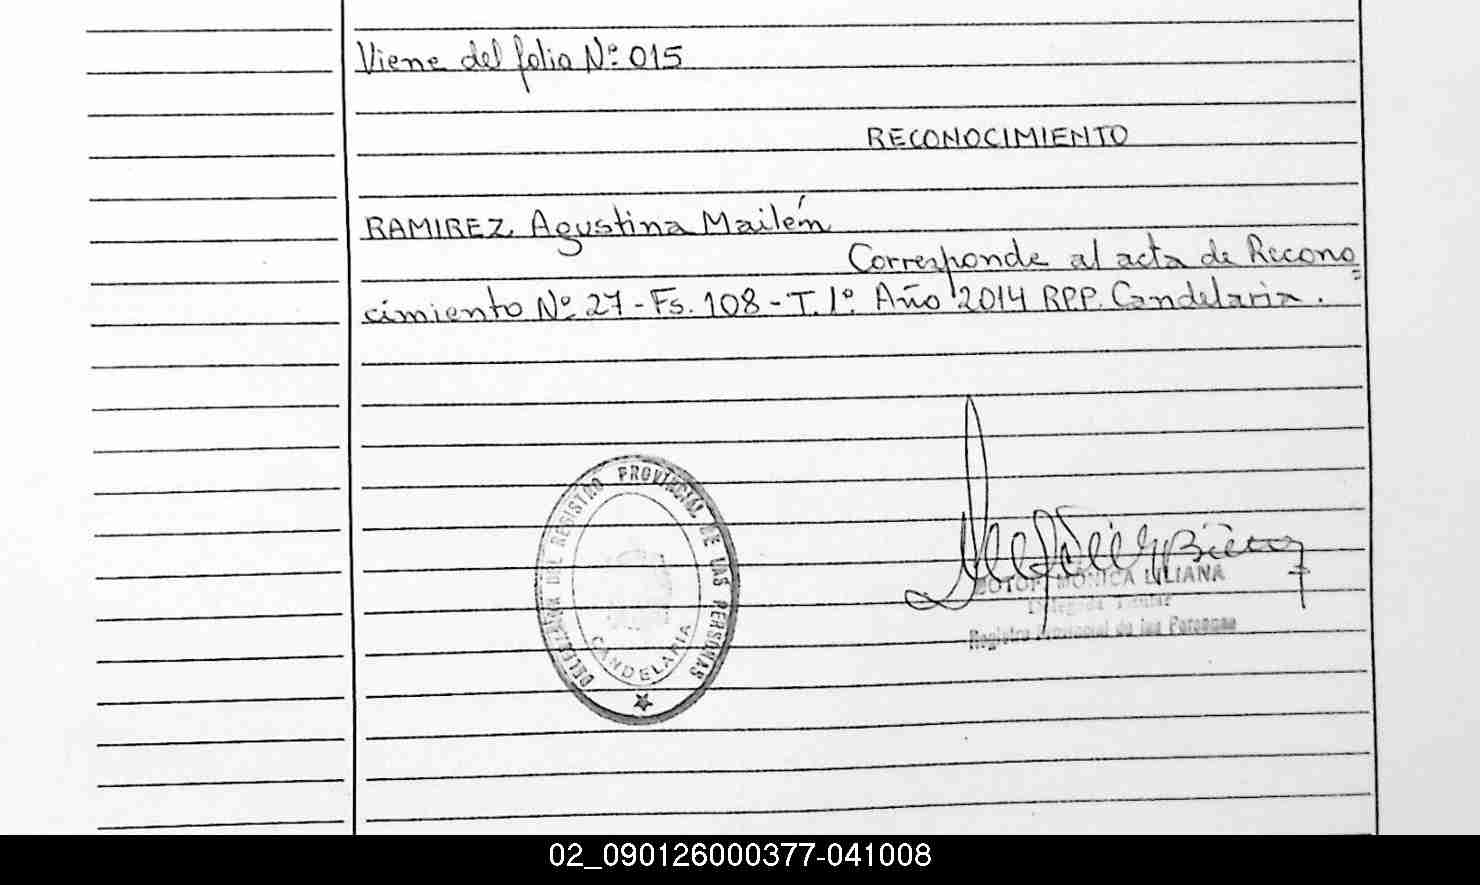 Viene del folio Nº 015
RECONOCIMIENTO
RAMIREZ Agustina Mailén
Corresponde al acta de Recono=
cimiento Nº 27 - Fs. 108 - T. 1º. Año 2014 RPP. Candelaria.
DELEGACIÓN DEL REGISTRO PROVINCIAL DE LAS PERSONAS
CANDELARIA
MÓNICA LILIANA
Delegada Titular
Registro Provincial de las Personas
02_090126000377-041008